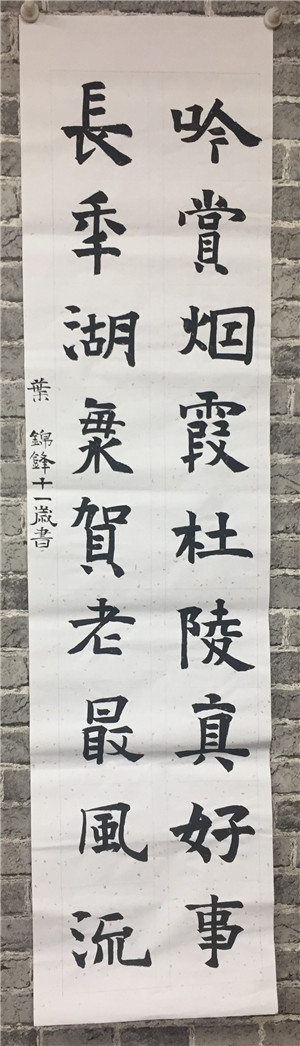 吟賞烟霞杜陵真好事
長秊湖賀老最風流
葉錦鋒十一歲書